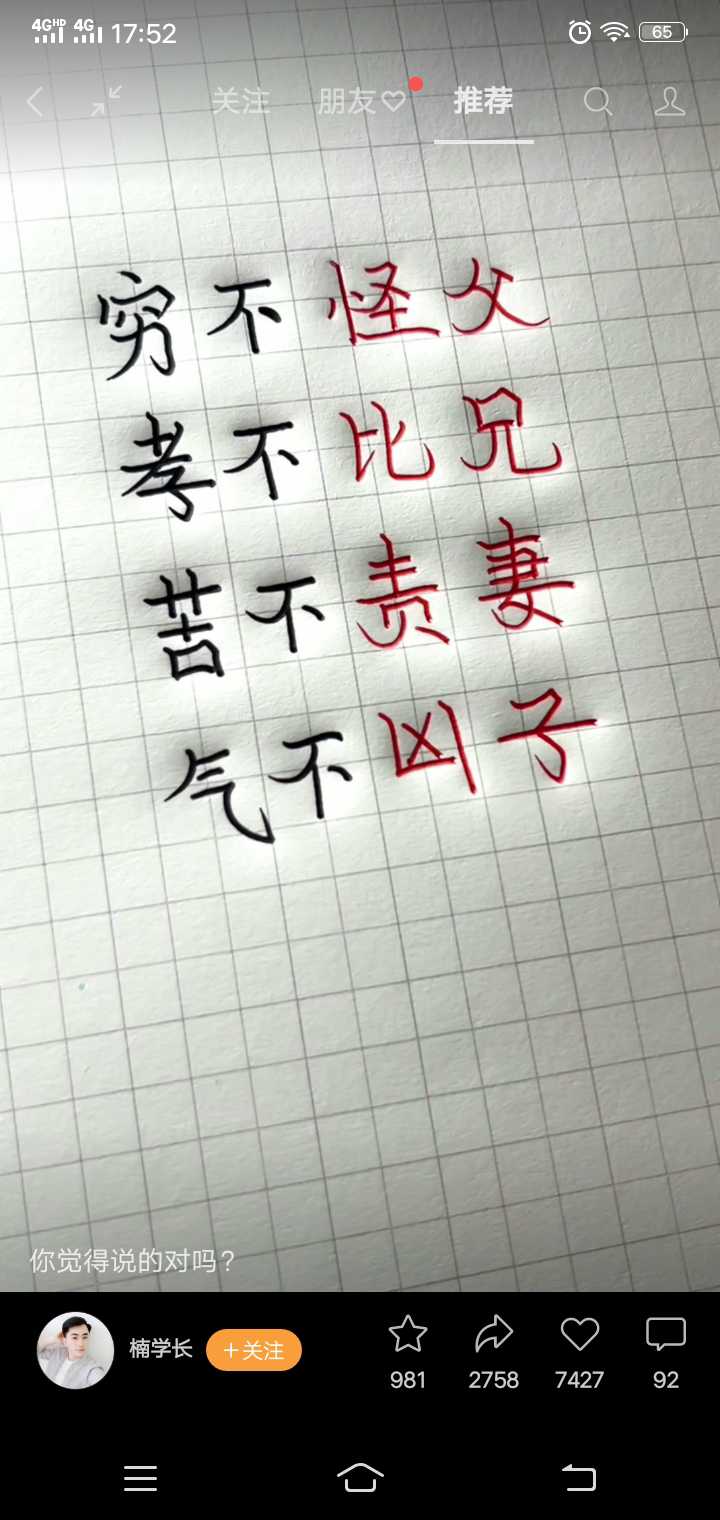 4G HD 4G 17:52 65
关注 朋友 推荐
穷不怪父
孝不比兄
苦不责妻
气不凶子
你觉得说的对吗?
楠学长 +关注 981 2758 7427 92